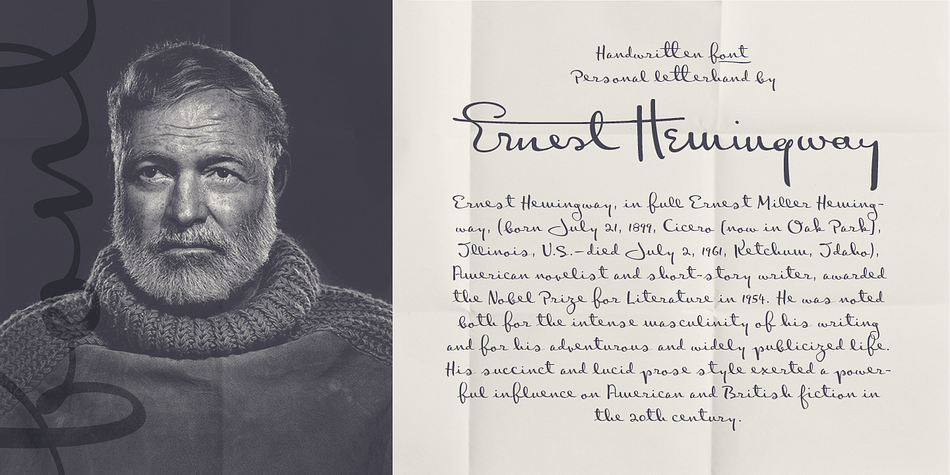 Handwritten font
Personal letterhand by
Ernest Hemingway
Ernest Hemingway, in full Ernest Miller Heming-
way, (born July 21, 1899, Cicero [now in Oak Park],
Illinois, U.S.—died July 2, 1961, Ketchum, Idaho),
American novelist and short-story writer, awarded
the Nobel Prize for Literature in 1954. He was noted
both for the intense masculinity of his writing
and for his adventurous and widely publicized life.
His succinct and lucid prose style exerted a power-
ful influence on American and British fiction in
the 20th century.